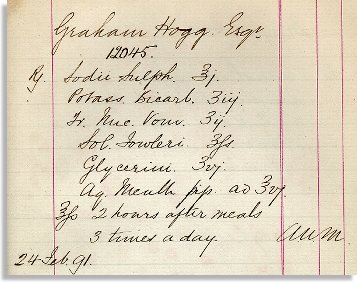 Graham Hogg. Esqr
12045.
Rj. Sodii Sulph. ʒj.
Potass. Bicarb. ʒiij.
Tr. Nuc. Vom. ʒij
Sol. Fowleri. ʒfs
Glycerini. ʒvj.
Aq. Menth pip. ad ʒvj.
ʒfs 2 hours after meals
3 times a day. A.W.M.
24 Feb. 91.